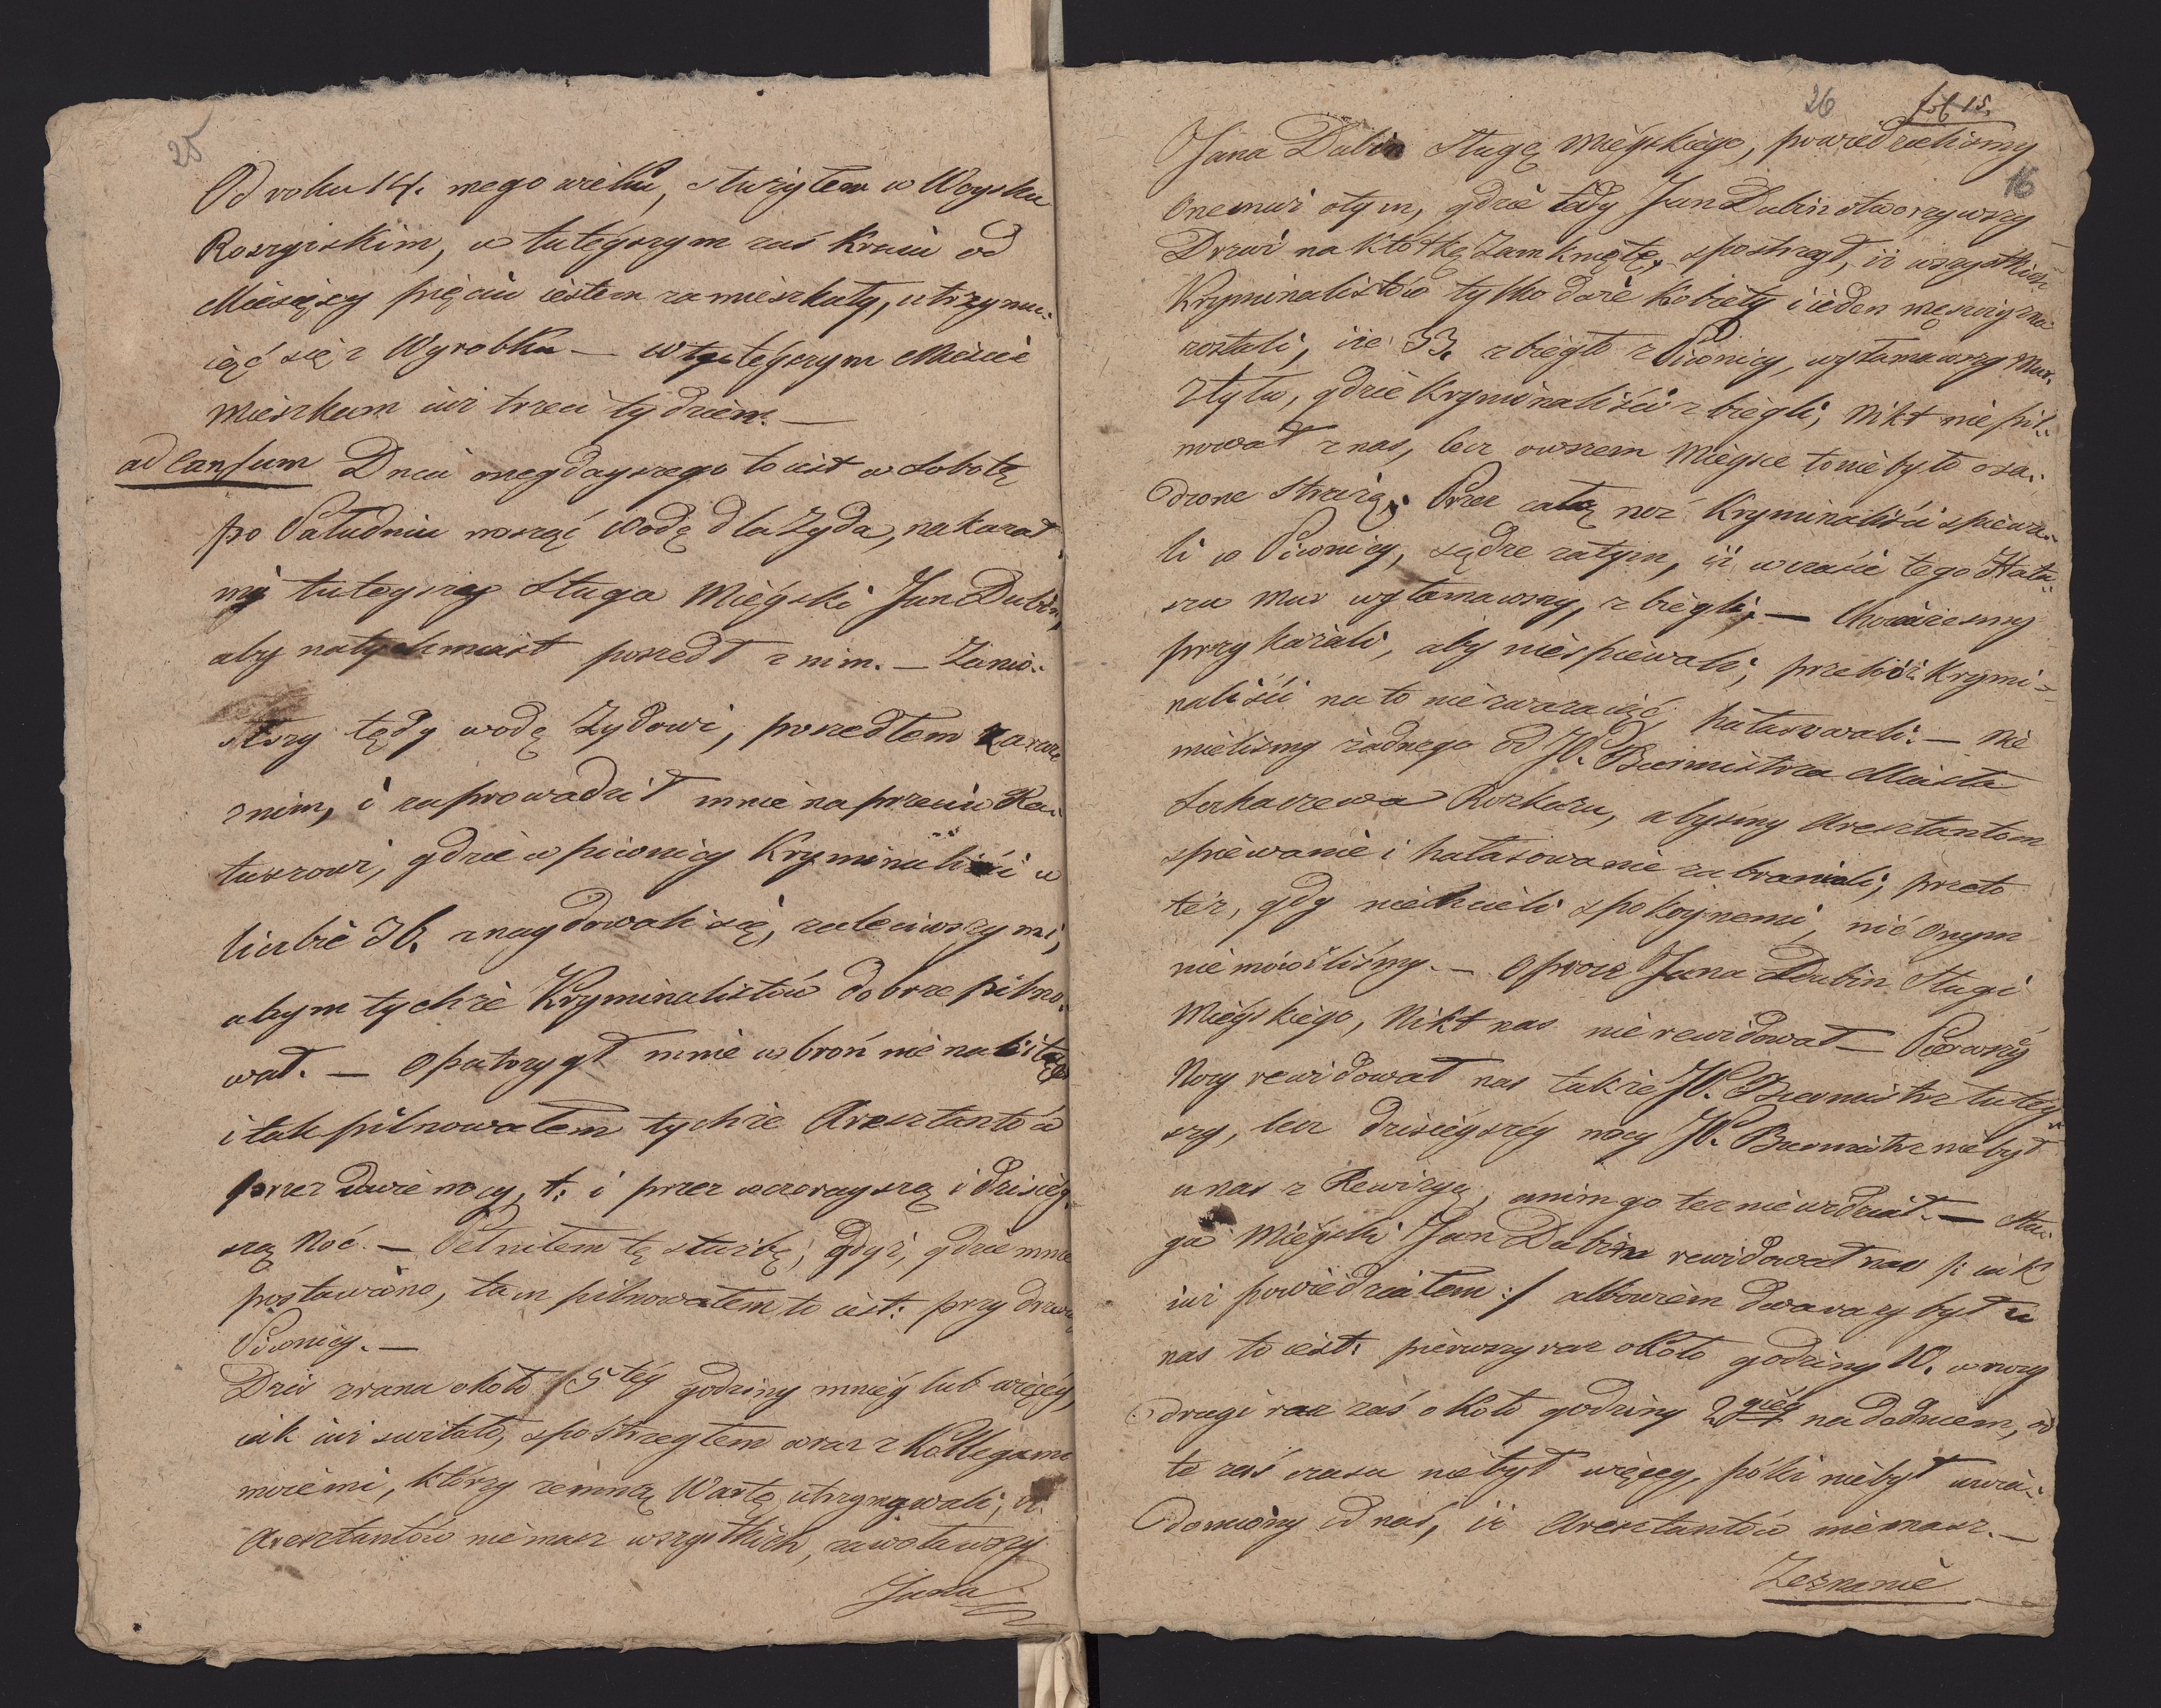 25
Od roku 14. mego wieku, służyłem w Woysku
Roszyiskim, w tuteyszym zaś Kraiu od
Miesięcy pięciu iestem zamieszkały, utrzymu-
iąć się z Wyrobku — w tuteyszym Mieście
mieszkam iuż trzeci tydzień. —
ad Causum Dnia onegdayszego to iest w Sobotę
po Południu nosząć wodę dla Żyda, nakazał
mi tuteyszy Sługa Mieyski Jan Dubin,
aby natychmiast poszedł z nim. — Zanio-
słszy tędy wodę Żydowi, poszedłem zaraz
z nim, i zaprowadził mnie naprzeciw Ra-
tuszowi, gdzie w piwnicy Kryminaliści w
liczbie 36. znaydowali się, zaleciwszy mi,
abym tychże Kryminalistów dobrze pilno-
wał. — Opatrzył mnie w broń nie nabitę
i tak pilnowałem tychże Aresztantów
przez dwie nocy, t: i przez wczorayszą i dzisiey-
szą Noć. — Pełniłem tę służbę, gdyż, gdzie mnie
postawiono, tam pilnowałem to iest: przy drzwi
Piwnicy. —
Dziś zrana około 5téy godziny mniéy lub więcéy,
iak iuż switało, spostrzegłem wraz z Kollegami
moiemi, którzy zemną Wartę utrzymywali, iż
Aresztantów nie masz wszystkich, zawoławszy
Jana
26 fol 15.
16
Jana Dubin Sługę Mieyskiego, powiedzieliśmy
onemuż o tym, gdzie tedy Jan Dubin otworzywszy
Drzwi na Kłótkę zamknięte, spostrzegł, iż wszystkich
Kryminalistów tylko dwie Kobiety i ieden męszczyzna
zostali, iże 33. zbiegło z Piwnicy, wyłamawszy Mur.
Ztyłu, gdzie Kryminaliści zbiegli, Nikt nie pil-
nował z nas, lecz owszem Mieysce to nie było osa-
dzone Strażą. Przez całą noć Kryminaliści spiewa-
li w Piwnicy, sądzę zatym, iż w czasie tego Hała-
szu Mur wyłamawszy, zbiegli. — Chociażesmy
przykazali, aby nie spiewali, przeciéż Krymi-
naliści na to nie zważaiąć, hałasowali. — Nie
mieliśmy żadnego od JP. Burmistrza Miasta
Sochaczewa Rozkazu, abyśmy Aresztantom
spiewanie i hałasowanie zabraniali, przeto
też, gdy nie chcieli spokoynemi, nić onym
nie mówiliśmy. — Oprocz Jana Dubin Sługi
Mieyskiego, Nikt nas nie rewidował — Pierwszy
Nocy rewidował nas także JP. Burmistrz tutey-
szy, lecz dzisieyszéy nocy JP. Burmistrz nie był
u nas z Rewizyą, anim go tez nie widział. — Słu-
ga Mieyski Jan Dubin rewidował nas /: iak
iuż powiedziałem :/ albowiem dwa razy był u
nas to iest: pierwszy raz około godziny 10. w nocy
drugi raz zaś około godziny 2giéy nadedniem, od
te zaś czasu nie był więcéy, póki nie był uwia-
domiony od nas, iż Aresztantów nie masz. —
Zeznanie